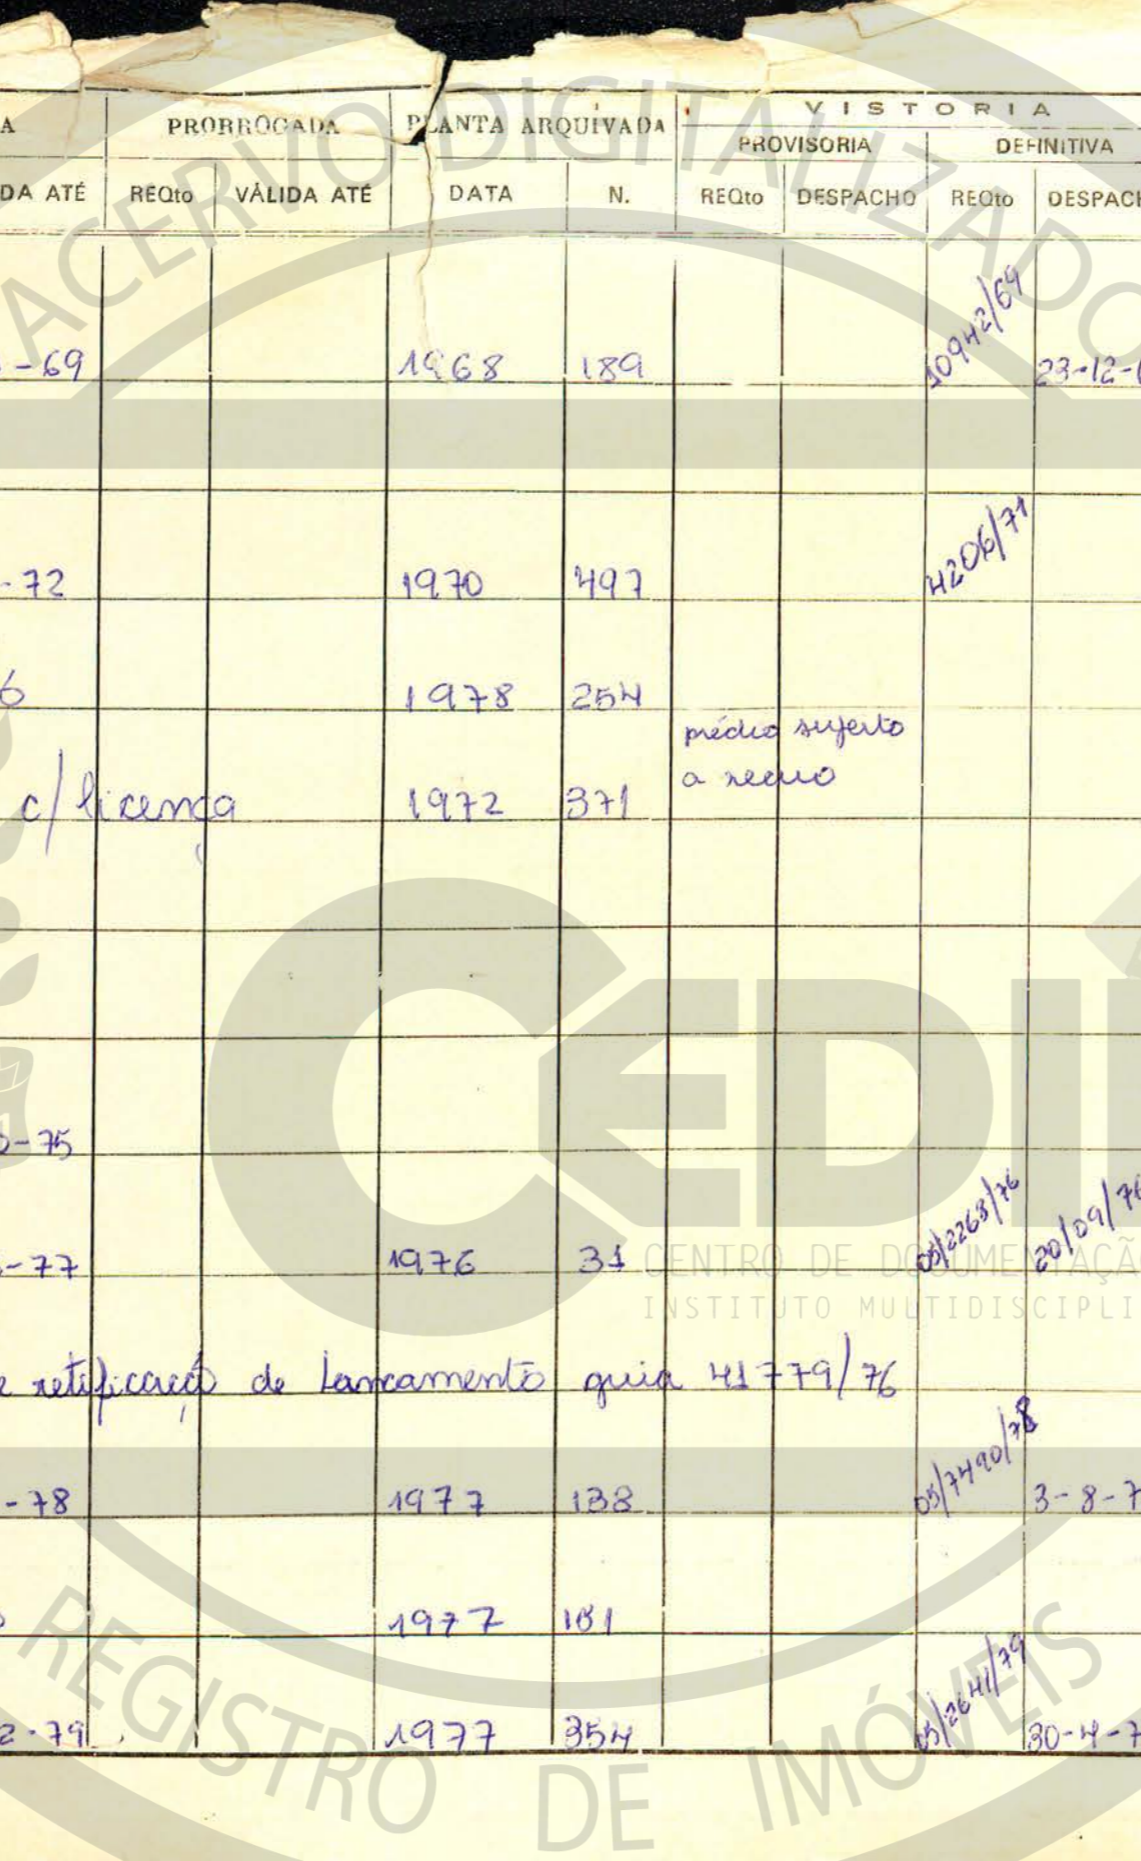 A PRORROGADA PLANTA ARQUIVADA VISTORIA
PROVISORIA DEFINITIVA
DA ATÉ REQto VÁLIDA ATÉ DATA N. REQto DESPACHO REQto DESPACH
-69 1968 189 10942/69 23-12-6
-72 1970 497 4206/71
6 1978 254
prédio sujeito
a recuo
c/ licença 1972 371
-75
-77 1976 31 05/2268/76 20/09/76
e retificação de Lançamento guia 41779/76
-78 1977 138 05/7490/78 3-8-7
1977 181
2-79 1977 354 05/2641/79 30-4-7
ACERVO DIGITALIZADO
CEDI
CENTRO DE DOCUMENTAÇÃ
INSTITUTO MULTIDISCIPLI
REGISTRO DE IMÓVEIS